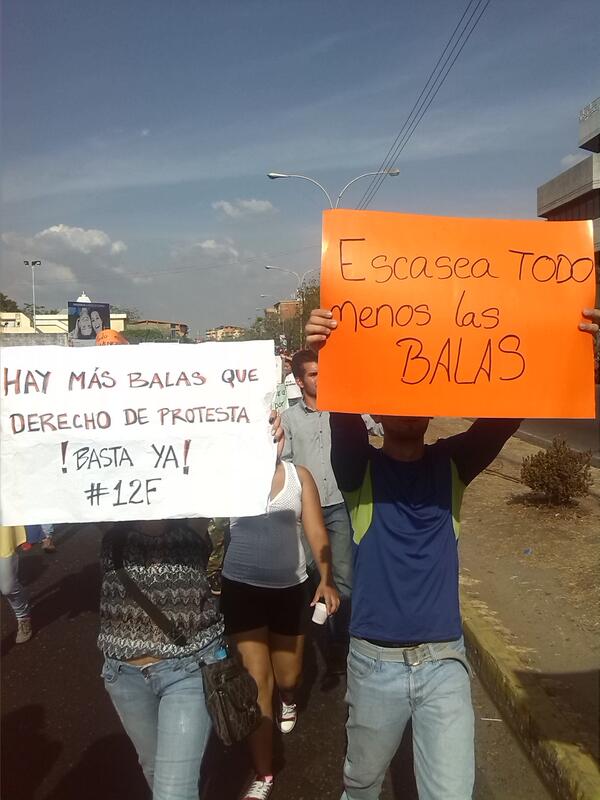 HAY MÁS BALAS QUE
DERECHO DE PROTESTA
!BASTA YA!
#12F
Escasea TODO
menos las
BALAS